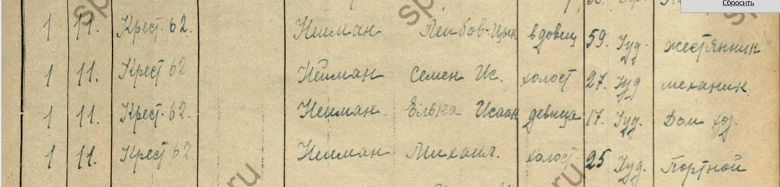 Сбросить
1 11. Крест. 62. Нейман Лейбов-Цик вдовец 59. Иуд. жестянник
1 11. Крест 62 Нейман Семен Ис. холост 27. Иуд механик.
1 11. Крест. 62. Нейман. Елька Исаак девица 17. Иуд. Дом. хоз.
1 11. Крест 62 Нейман Михаил. холост 25 Иуд. Портной